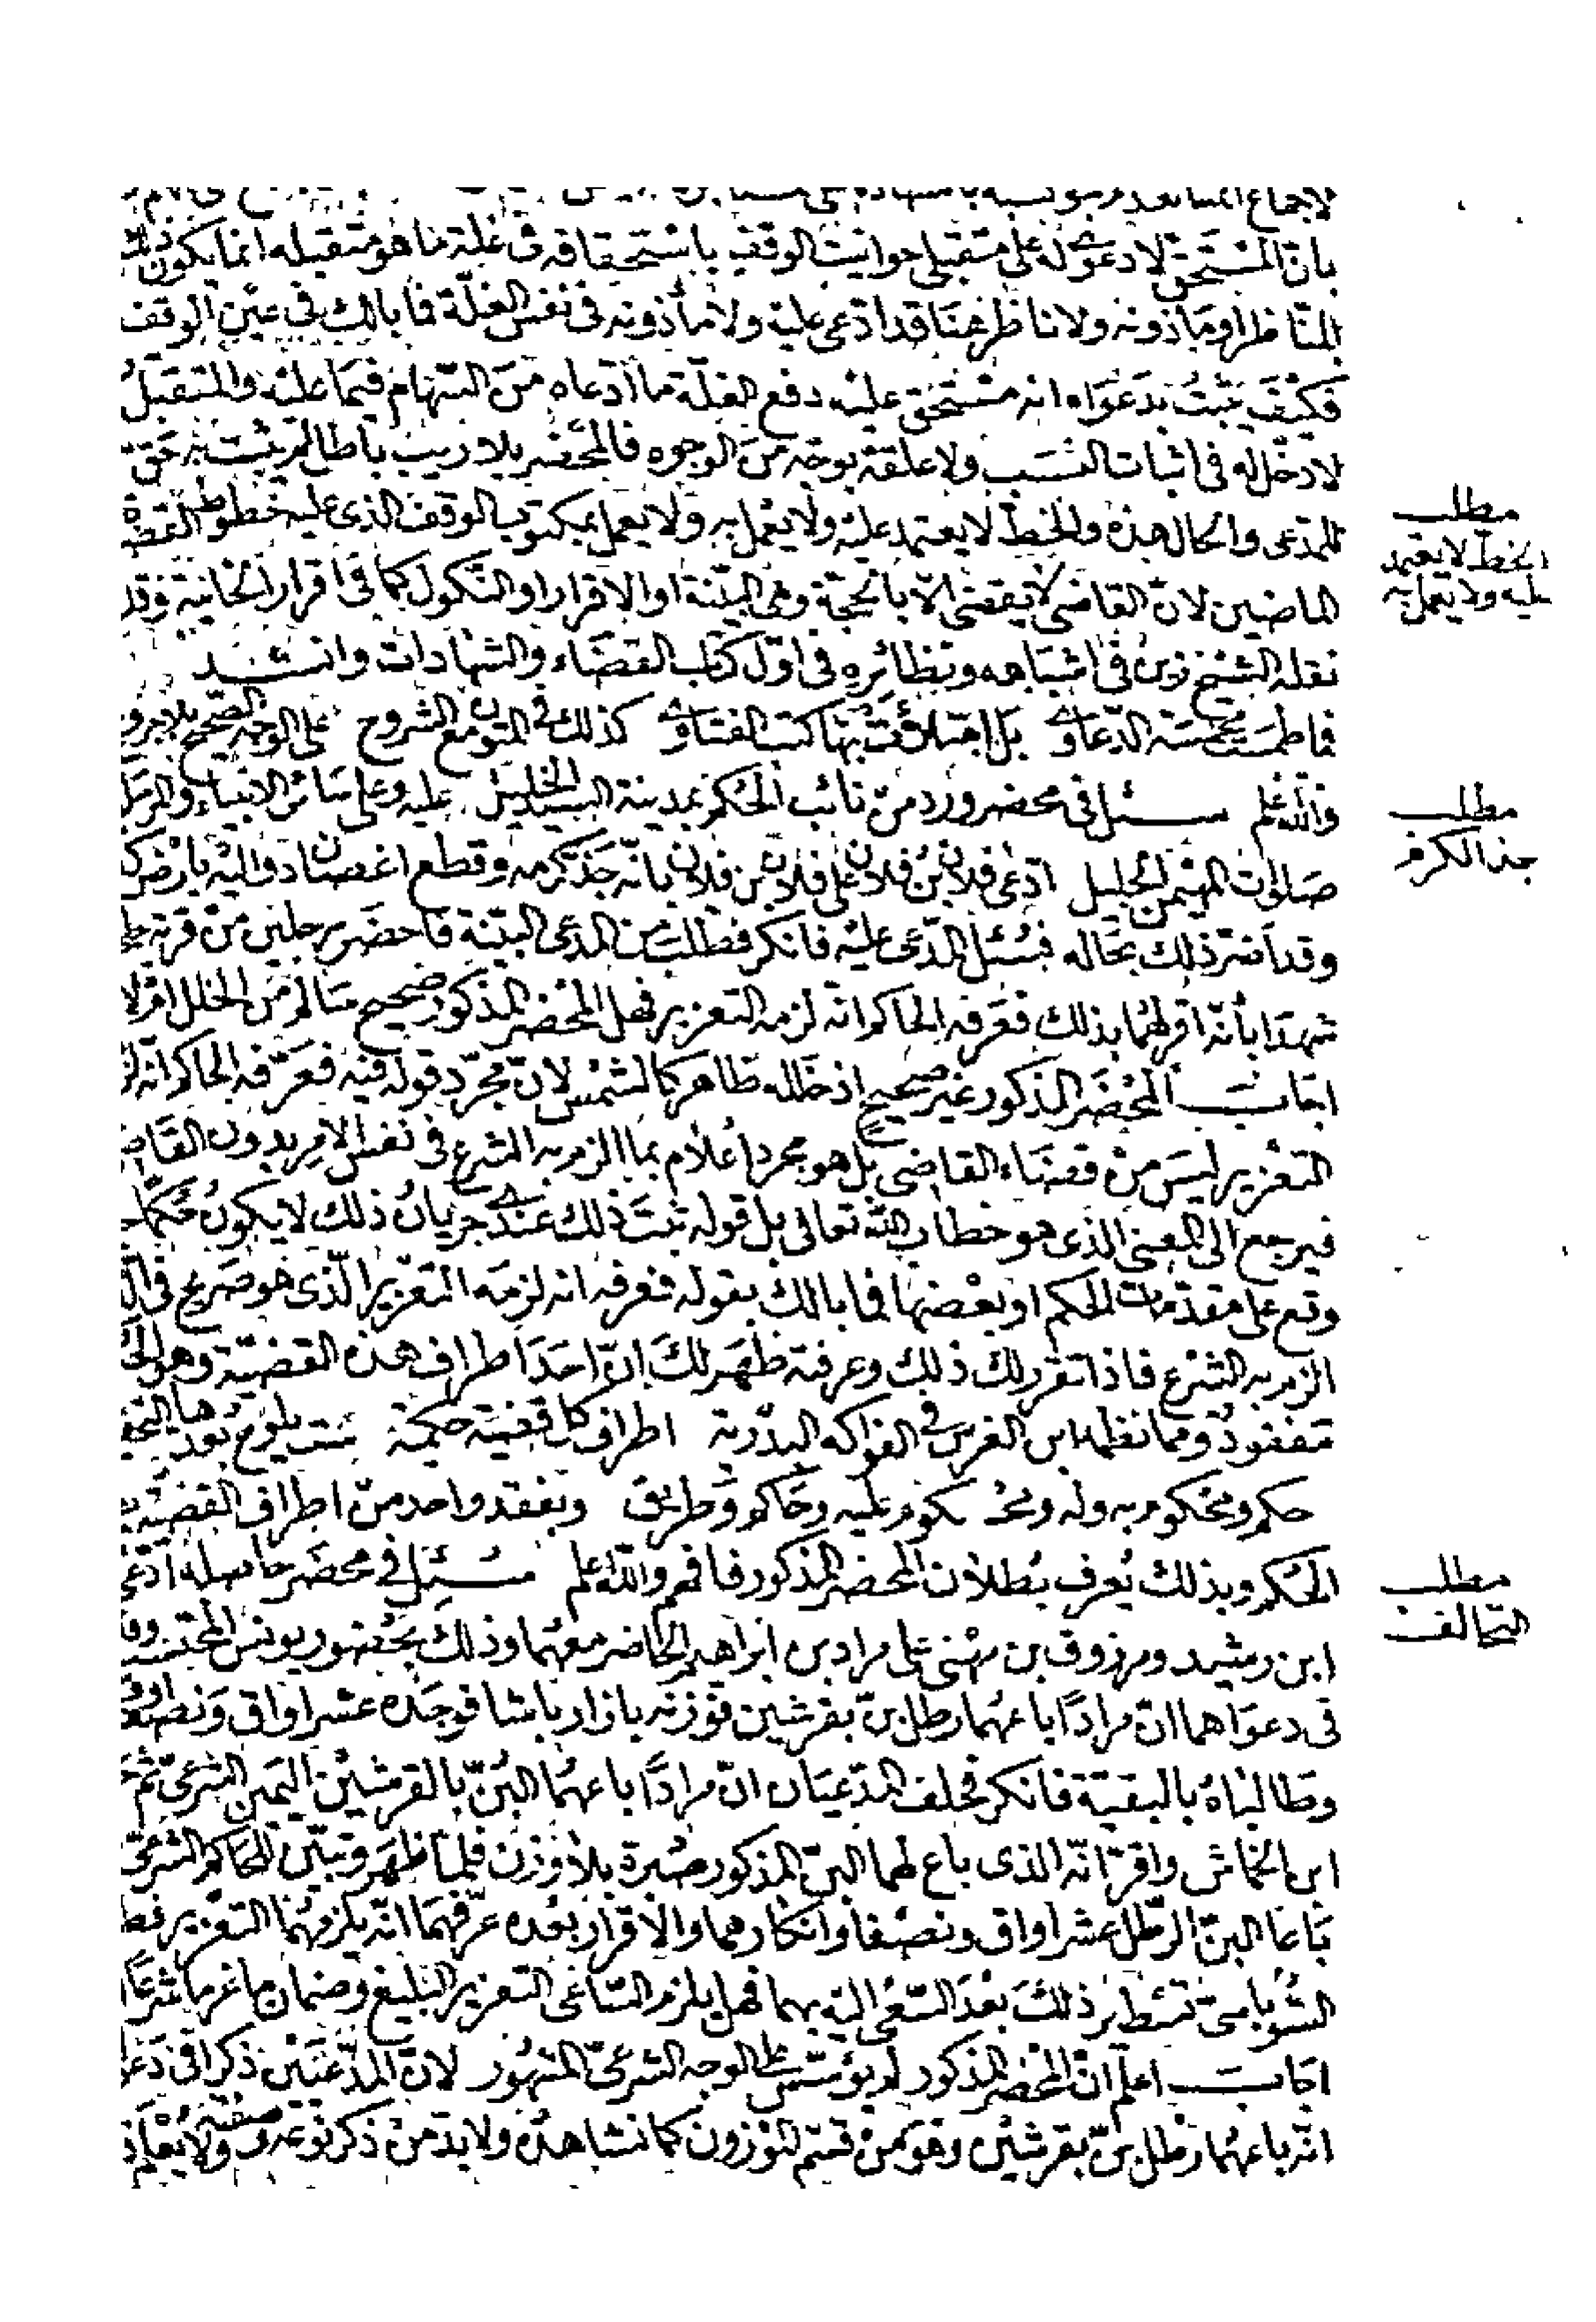 بان المستحق لا دعوى له على متقبلي حوانيت الوقف باستحقاقه في غلة ما هو متقبله انما يكون ذلك
للناظر او ماذونه ولا ناظر هنا قد ادعى عليه ولا مأذونه في نفس الغلة فما بالك في عين الوقف
فكيف يثبت بدعواه انه مستحق عليه دفع الغلة ما ادعاه من السهام فيما عليه والمتقبل
لا دخل له في اثبات النسب ولا علقة بوجه من الوجوه فالمحضر بلا ريب باطل لم يثبت به حق
للمدعى والحال هذه والخط لا يعتمد عليه ولا يعمل به ولا يعمل بمكتوب الوقف الذي عليه خطوط القضاة
مطلب
الخط لا يعتمد
عليه ولا يعمل به
الماضين لان القاضي لا يقضي الا بالحجة وهي البينة او الاقرار او النكول كما في اقرار الخانية وقد
نقله الشيخ زين في اشباهه ونظائره في اول كتاب القضاء والشهادات وانشد
الدعاوى بل امتلأت بها كتب الفتاوى كذلك في المتون مع الشروح على الوجه الصحيح بلا
والله اعلم سئل في محضر ورد من نائب الحكم بمدينة السيد الخليل عليه وعلى سائر الانبياء والرسل
مطلب
جذ الكرم
صلوات المهيمن الجليل ادعى فلان بن فلان على فلان بن فلان بانه جذ كرمه وقطع اغصان دواليه بارض
وقد اضر ذلك بحاله فسئل المدعى عليه فانكر فطلب من المدعى البينة فاحضر رجلين من قرية
شهدا بأنه اقر لهما بذلك فعرفه الحاكم انه لزمه التعزير فهل المحضر المذكور صحيح سالم من الخلل ام لا
اجاب المحضر المذكور غير صحيح اذ خلله ظاهر كالشمس لان مجرد قوله فيه فعرفه الحاكم انه
التعزير ليس من قضاء القاضي بل هو مجرد اعلام بما الزم به الشرع في نفس الامر بدون
فيرجع الى المعنى الذي هو خطاب الله تعالى بل قوله ثبت ذلك عندي جريان ذلك لا يكون حكما
وقع على مقدمات الحكم او بعضها فما بالك بقوله فعرفه انه لزمه التعزير الذي هو صريح في
الزم به الشرع فاذا تقرر لك ذلك وعرفته ظهر لك ان احد اطراف هذه القضية وهو
مفقود ومما نظمه ابن الغرس في الفواكه البدرية اطراف كل قضية حكمية ست يلوح بعدها
حكم ومحكوم به وله ومحكوم عليه وحاكم وطريق وبفقد واحد من اطراف القضية
الحكم وبذلك يعرف بطلان المحضر المذكور فافهم والله اعلم سئل في محضر حاصله ادعى
مطلب
التحالف
ابن رشيد ومرزوق بن مهنى على مراد بن ابراهيم الحاضر معهما وذلك بحضور يونس المحتسب
في دعواهما ان مرادا باعهما رطل بن بقرشين فوزنه بازار باشا فوجده عشر اواق ونصف
وطالباه بالبقية فانكر فحلف المدعيان ان مرادا باعهما البن بالقرشين اليمين الشرعي ثم
ابن الخاش واقر انه الذي باع لهما البن المذكور صبرة بلا وزن فلما ظهر وتبين للحاكم الشرعي
باعا البن الرطل عشر اواق ونصفا وانكارهما والاقرار بعده عرفهما انه يلزمهما التعزير
ذلك بعد السعي اليه بهما فهل يلزم الساعي التعزير البليغ وضمان ما غرما شرعا
اجاب اعلم ان المحضر المذكور لم يؤسس على الوجه الشرعي المشهور لان المدعيين ذكرا في
انه باعهما رطل بن بقرشين وهو من قسم الموزون كما نشاهده ولا بد من ذكر نوعه وصفته ولا